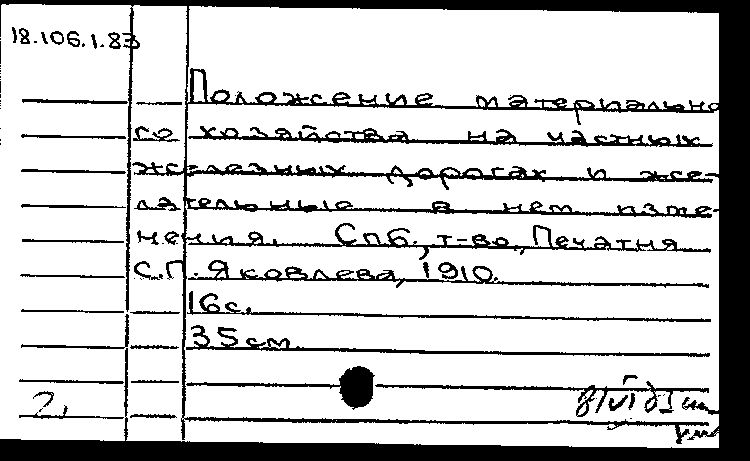 18.106.1.83
Положение материально
го хозяйства на частных
железных дорогах и же-
лательные в нем изме-
нения. Спб., т-во "Печатня
С.П. Яковлева, 1910.
16с.
35см.
2,